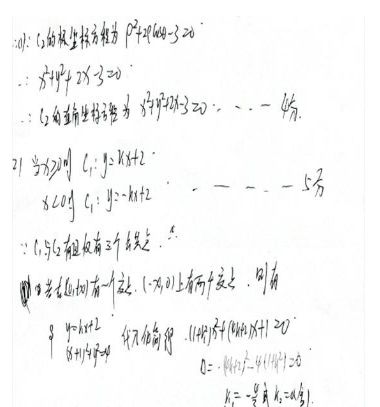 (1) ∵ C₂的极坐标方程为 ρ²+2ρcosθ-3=0
∴ x²+y²+2x-3=0
∴ C₂的直角坐标方程为 x²+y²+2x-3=0 . . . - 4分.
2) 当x≥0时 C₁: y=kx+2
x<0时 C₁: y=-kx+2 . - - - - 5分
∵ C₁与C₂有且仅有三个公共点.
有一个交点. (-∞,0)上有两个交点. 则有
{ y=kx+2
(x+1)²+y²=4 代入化简得 (1+k²)x²+(4k+2)x+1=0
Δ=(4k+2)²-4(1+k²)=0